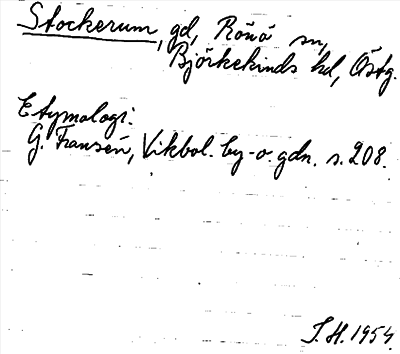 Stockerum, gd, Rönö sn,
Björkekinds hd, Östg.
Etymologi:
G. Fransén, Vikbol. by- o. gdn. s. 208.
J. H. 1954